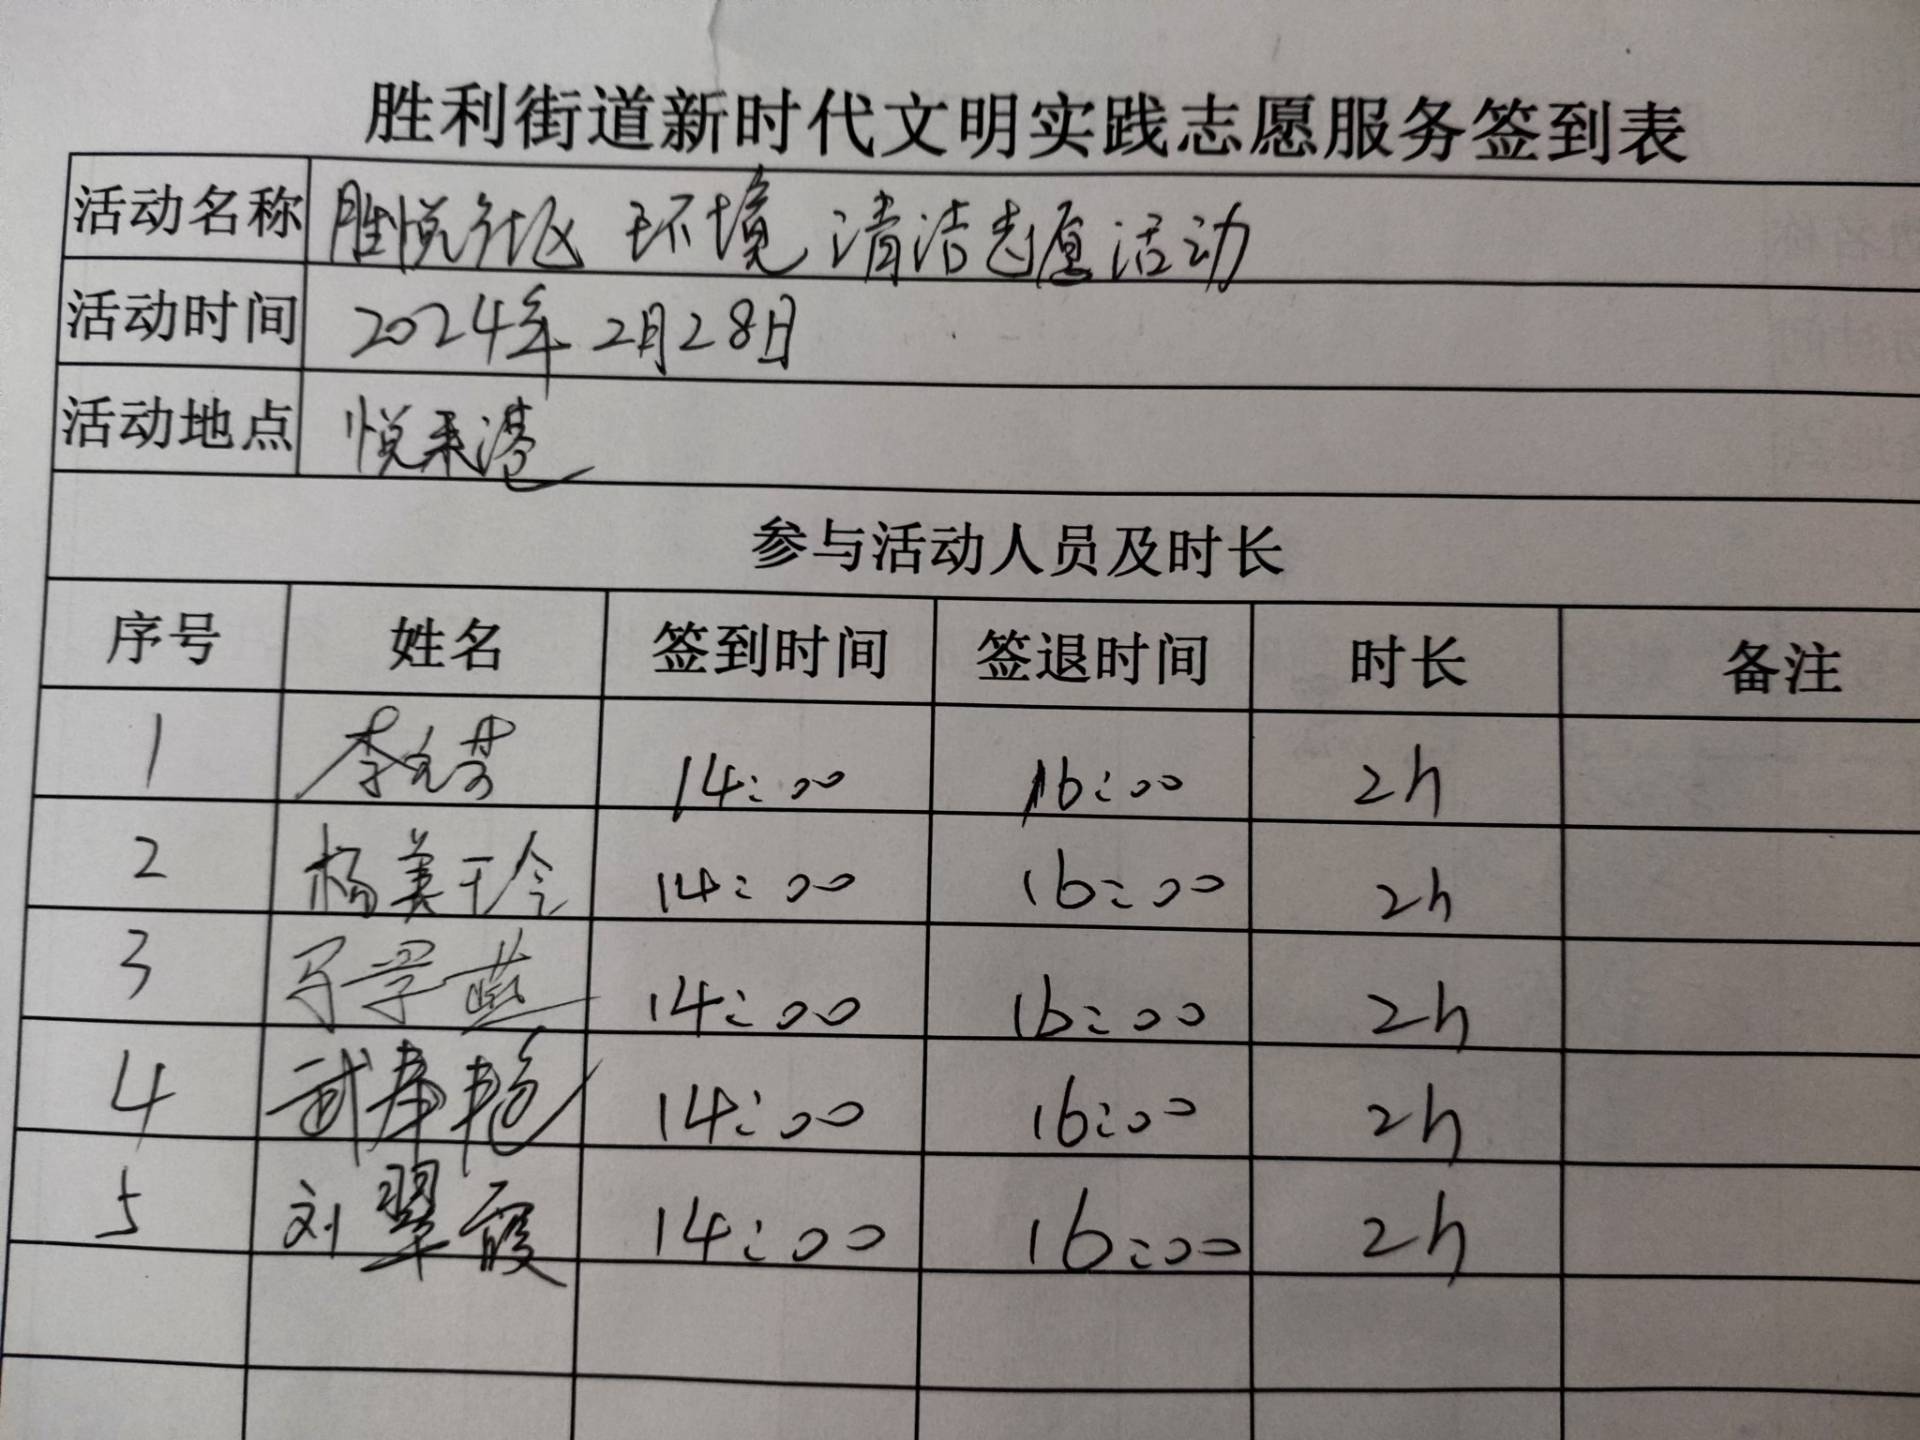 胜利街道新时代文明实践志愿服务签到表
活动名称 胜悦社区 环境 清洁志愿活动
活动时间 2024年2月28日
活动地点 悦来港
参与活动人员及时长
序号 姓名 签到时间 签退时间 时长 备注
1 李 芳 14:00 16:00 2h
2 杨美玲 14:00 16:00 2h
3 马学燕 14:00 16:00 2h
4 武 艳 14:00 16:00 2h
5 刘翠霞 14:00 16:00 2h